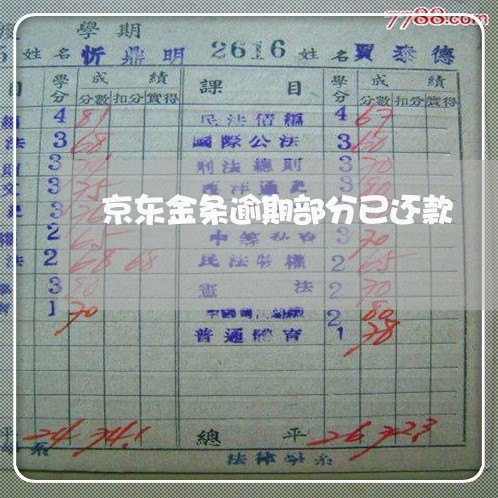 7788.com
學期
姓名 忻鼎明 2616 姓名 賈泰德
目 學分 成績 課目 學分 成績
分數 扣分 實得 分數 扣分 實得
4 81 民法債編 4 67
法 3 68 國際公法 3 60
3 刑法總則 3 70
3 75 西洋通史 3 80
京东金条逾期部分已还款
2 65 3 70
法 2 68 68 民法物權 2 65
3 80 憲法 2 70
1 70 2 80
普通體育 1 78
平 24 74.1 總平 26 72.3
系 法律學系